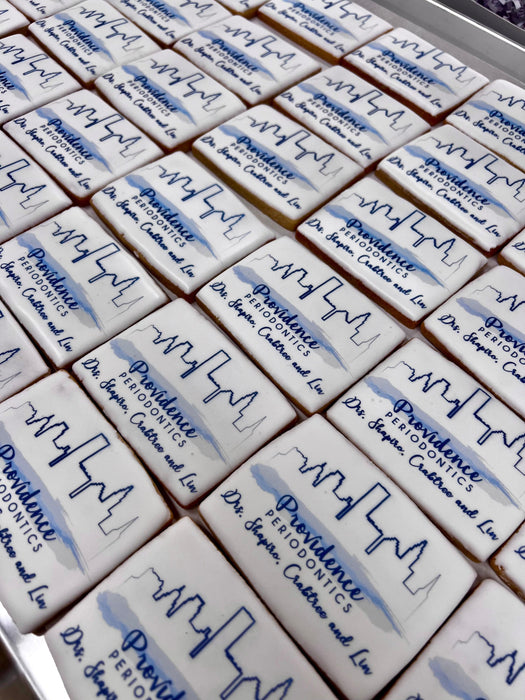 Providence
PERIODONTICS
Drs. Shapiro, Crabtree and Lin